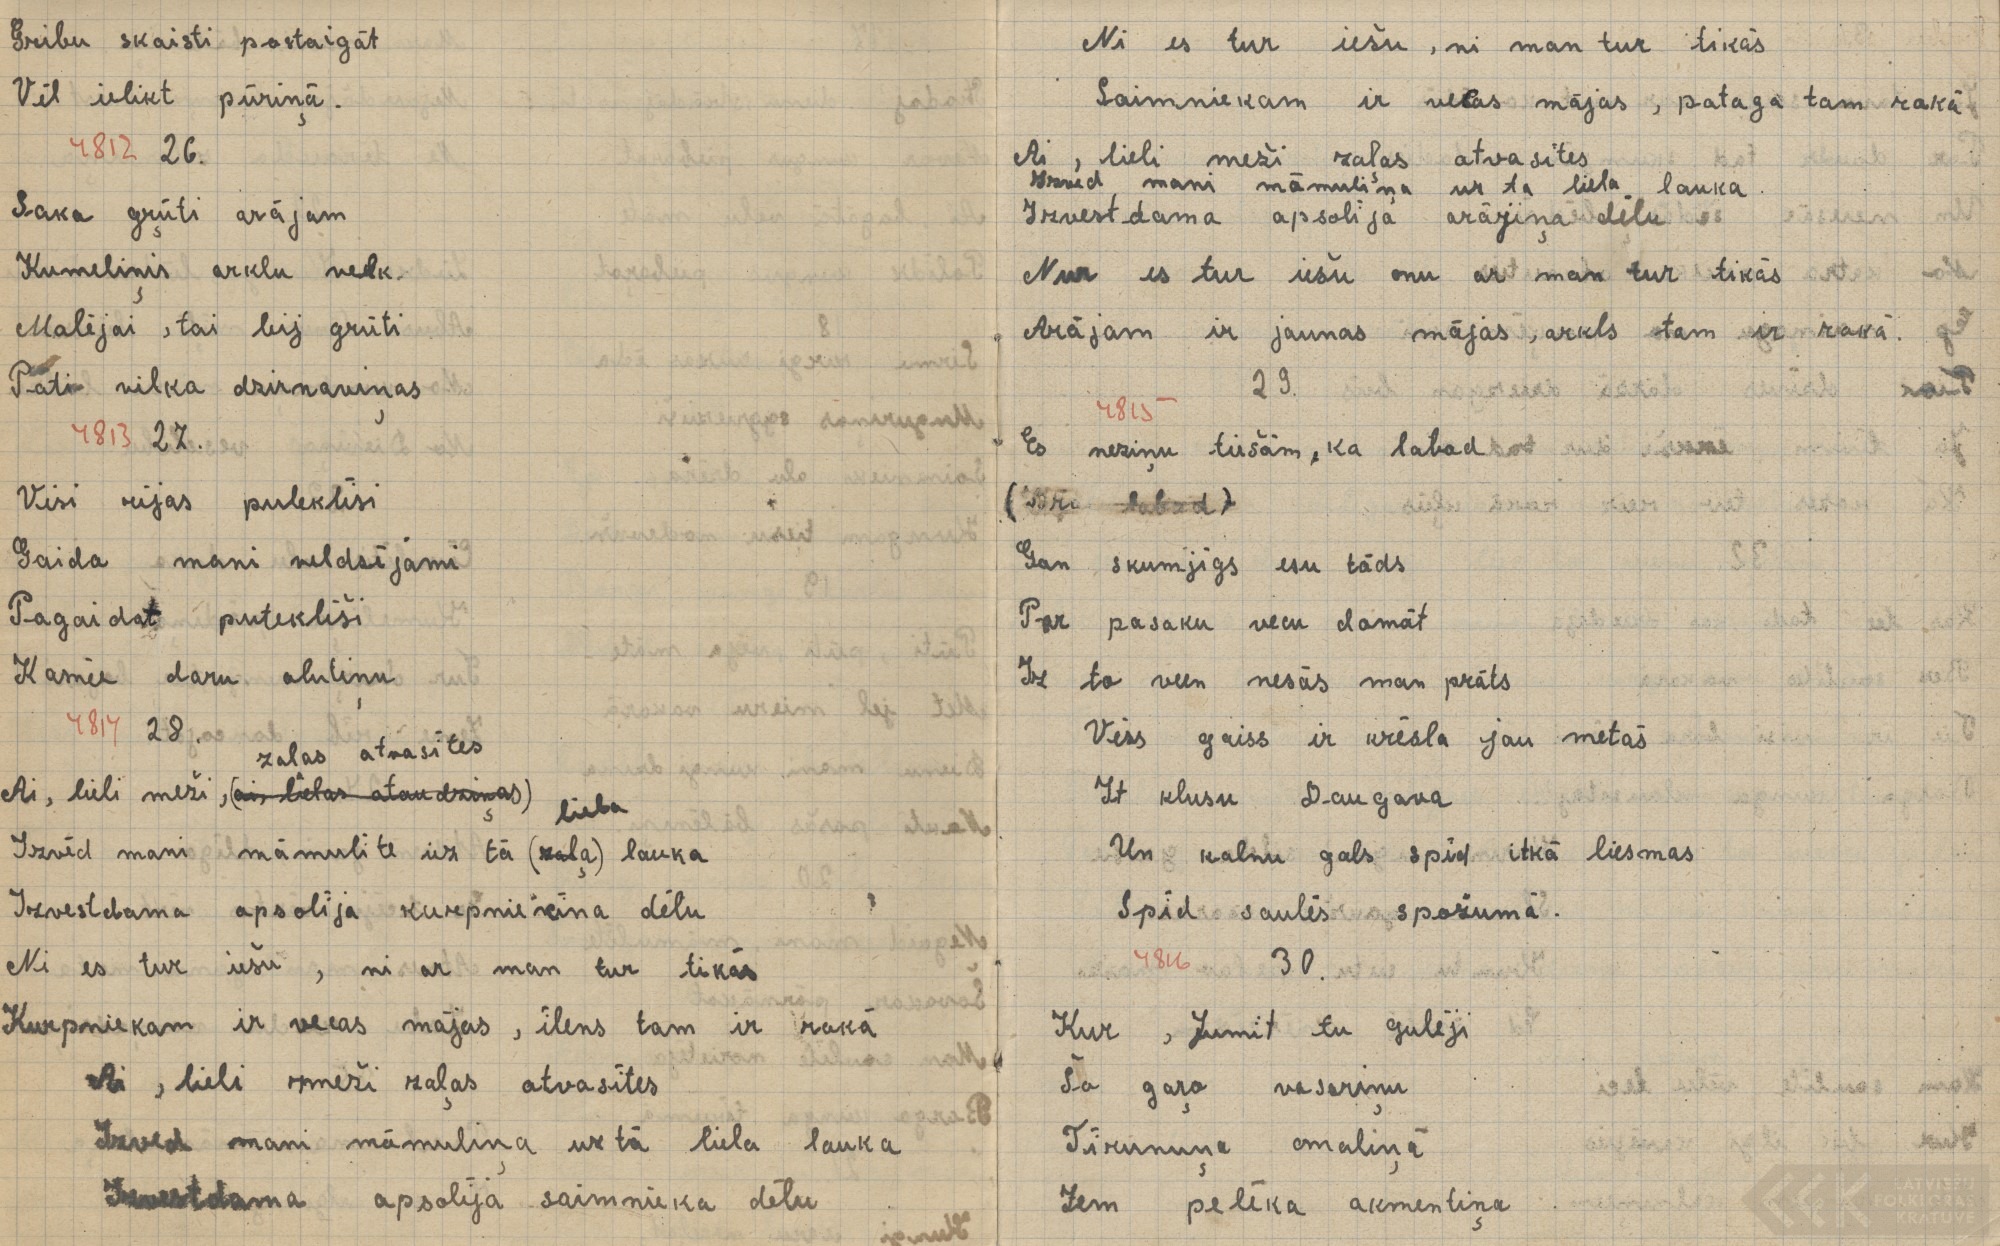 Gribu skaisti pastaigāt
Vēl ielikt pūriņā.
4812 26.
Saka grūti arājam
Kumeliņis arklu velk.
Malējai, tai bij grūti
Pati vilka dzirnaviņas
4813 27.
Visi rijas puteklīši
Gaida mani veldsējami
Pagaidat puteklīši
Kamēr daru alutiņu
4814 28.
zaļas atvasītes
Ai, lieli meži, (ai, lielas ataudziņas)
liela
Izvēd mani māmulite uz tā (zaļa) lauka
Izvestdama apsolīja kurpniekiņa dēlu
Ni es tur iešu, ni ar man tur tikās
Kurpniekam ir vecas mājas, īlens tam ir rokā
Ai, lieli meži zaļas atvasītes
Izved mani māmuliņa uz tā liela lauka
Izvestdama apsolīja saimnieka dēlu
Ni es tur iešu, ni man tur tikās
Saimniekam ir vecas mājas, pataga tam rokā
Ai, lieli meži zaļas atvasītes
Izved mani māmuliņa uz ta liela lauka.
Izvestdama apsolīja arājiņa dēlu
Nur es tur iešu onu ar man tur tikās
Arājam ir jaunas mājas, arkls tam ir rokā.
29.
4815
Es neziņu tiešām, ka labad
( labad)
Gan skumjīgs esu tāds
Par pasaku vecu domāt
Iz to veen nesās man prāts
Viss gaiss ir krēsla jau metas
It klusu Daugava
Un kalnu gals spīd itkā liesmas
Spīd saulēs spožumā.
4816 30.
Kur, Jumit tu gulēji
Šo gaŗo vasariņu
Tīrumuņa omaliņā
Zem pelēka akmentiņa
LATVIEŠU
FOLKLORAS
KRĀTUVE